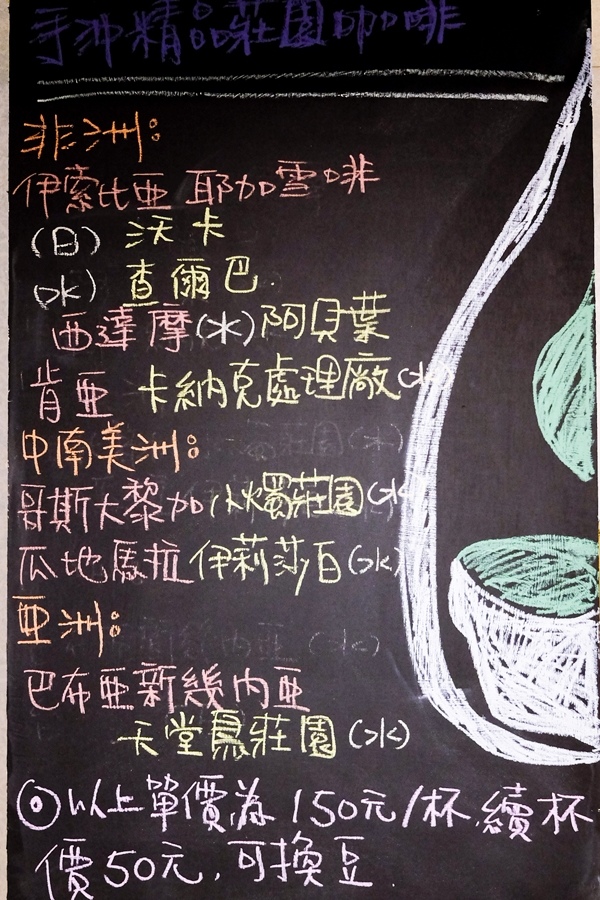 手沖精品莊園咖啡
非洲:
伊索比亞 耶加雪啡
(日) 沃卡
水) 查爾巴
西達摩(水)阿貝葉
肯亞 卡納克處理廠(水
中南美洲:
哥斯大黎加 小燭莊園(水
瓜地馬拉 伊莉莎白(水)
亞洲:
巴布亞新幾內亞
天堂鳥莊園(水)
⊙以上單價為150元/杯,續杯
價50元,可換豆.